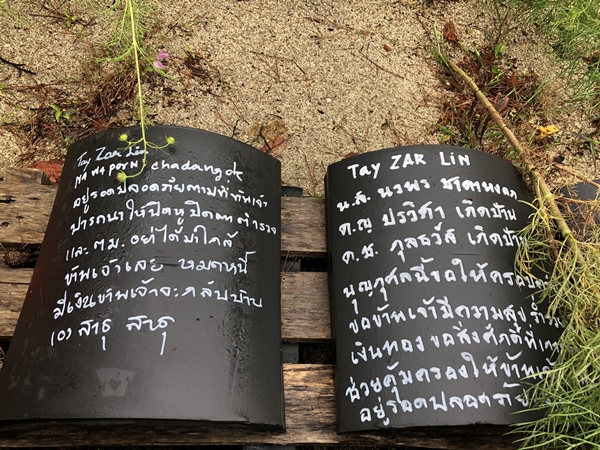 Tay Zar Lin
Na Wa Porn chadang
อยู่รอดปลอดภัยตามที่ข้าพเจ้า
ปารถนาให้ปิดหูปิดตาตำรวจ
และ ตม. อย่าได้มาใกล้
ข้าพเจ้าเลย หมดหนี้
มีเงินข้าพเจ้าจะกลับบ้าน
สาธุ สาธุ
Tay ZAR LiN
น.ส. นวพร
ด.ญ ปวริศา เกิดบ้าน
ด.ช. กุลธวัส เกิดบ้าน
บุญกุศลนี้ขอให้ครอบ
ขอข้าพเจ้ามีความสุข
เงินทอง ขอสิ่งศักดิ์ที่
ช่วยคุ้มครองให้ข้าพ
อยู่รอดปลอดภัย